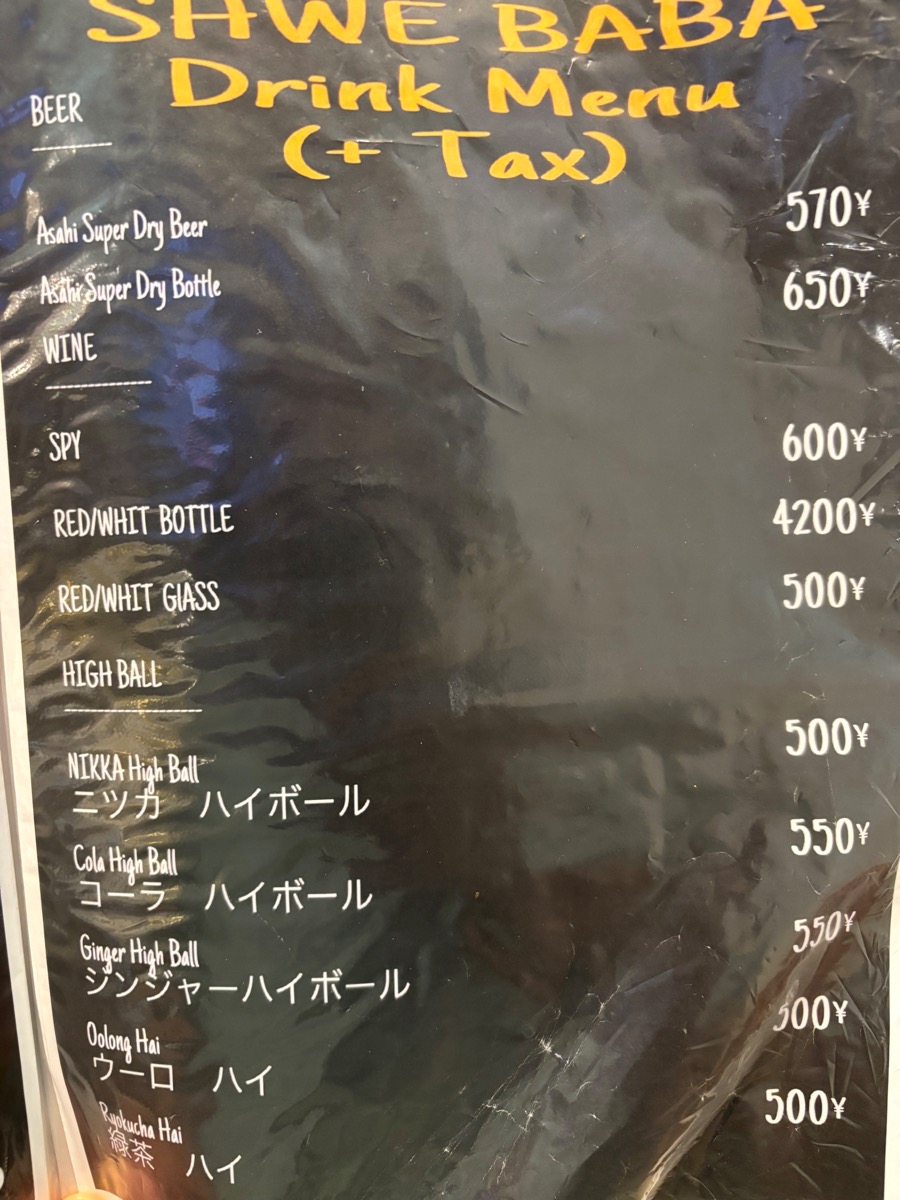 SHWE BABA
Drink Menu
(+ Tax)
BEER
Asahi Super Dry Beer 570¥
Asahi Super Dry Bottle 650¥
WINE
SPY 600¥
RED/WHIT BOTTLE 4200¥
RED/WHIT GlASS 500¥
HIGH BALL
NIKKA High Ball 500¥
ニツカ ハイボール
Cola High Ball 550¥
コーラ ハイボール
Ginger High Ball 550¥
シンジャーハイボール
Oolong Hai 500¥
ウーロ ハイ
Ryokucha Hai 500¥
緑茶 ハイ